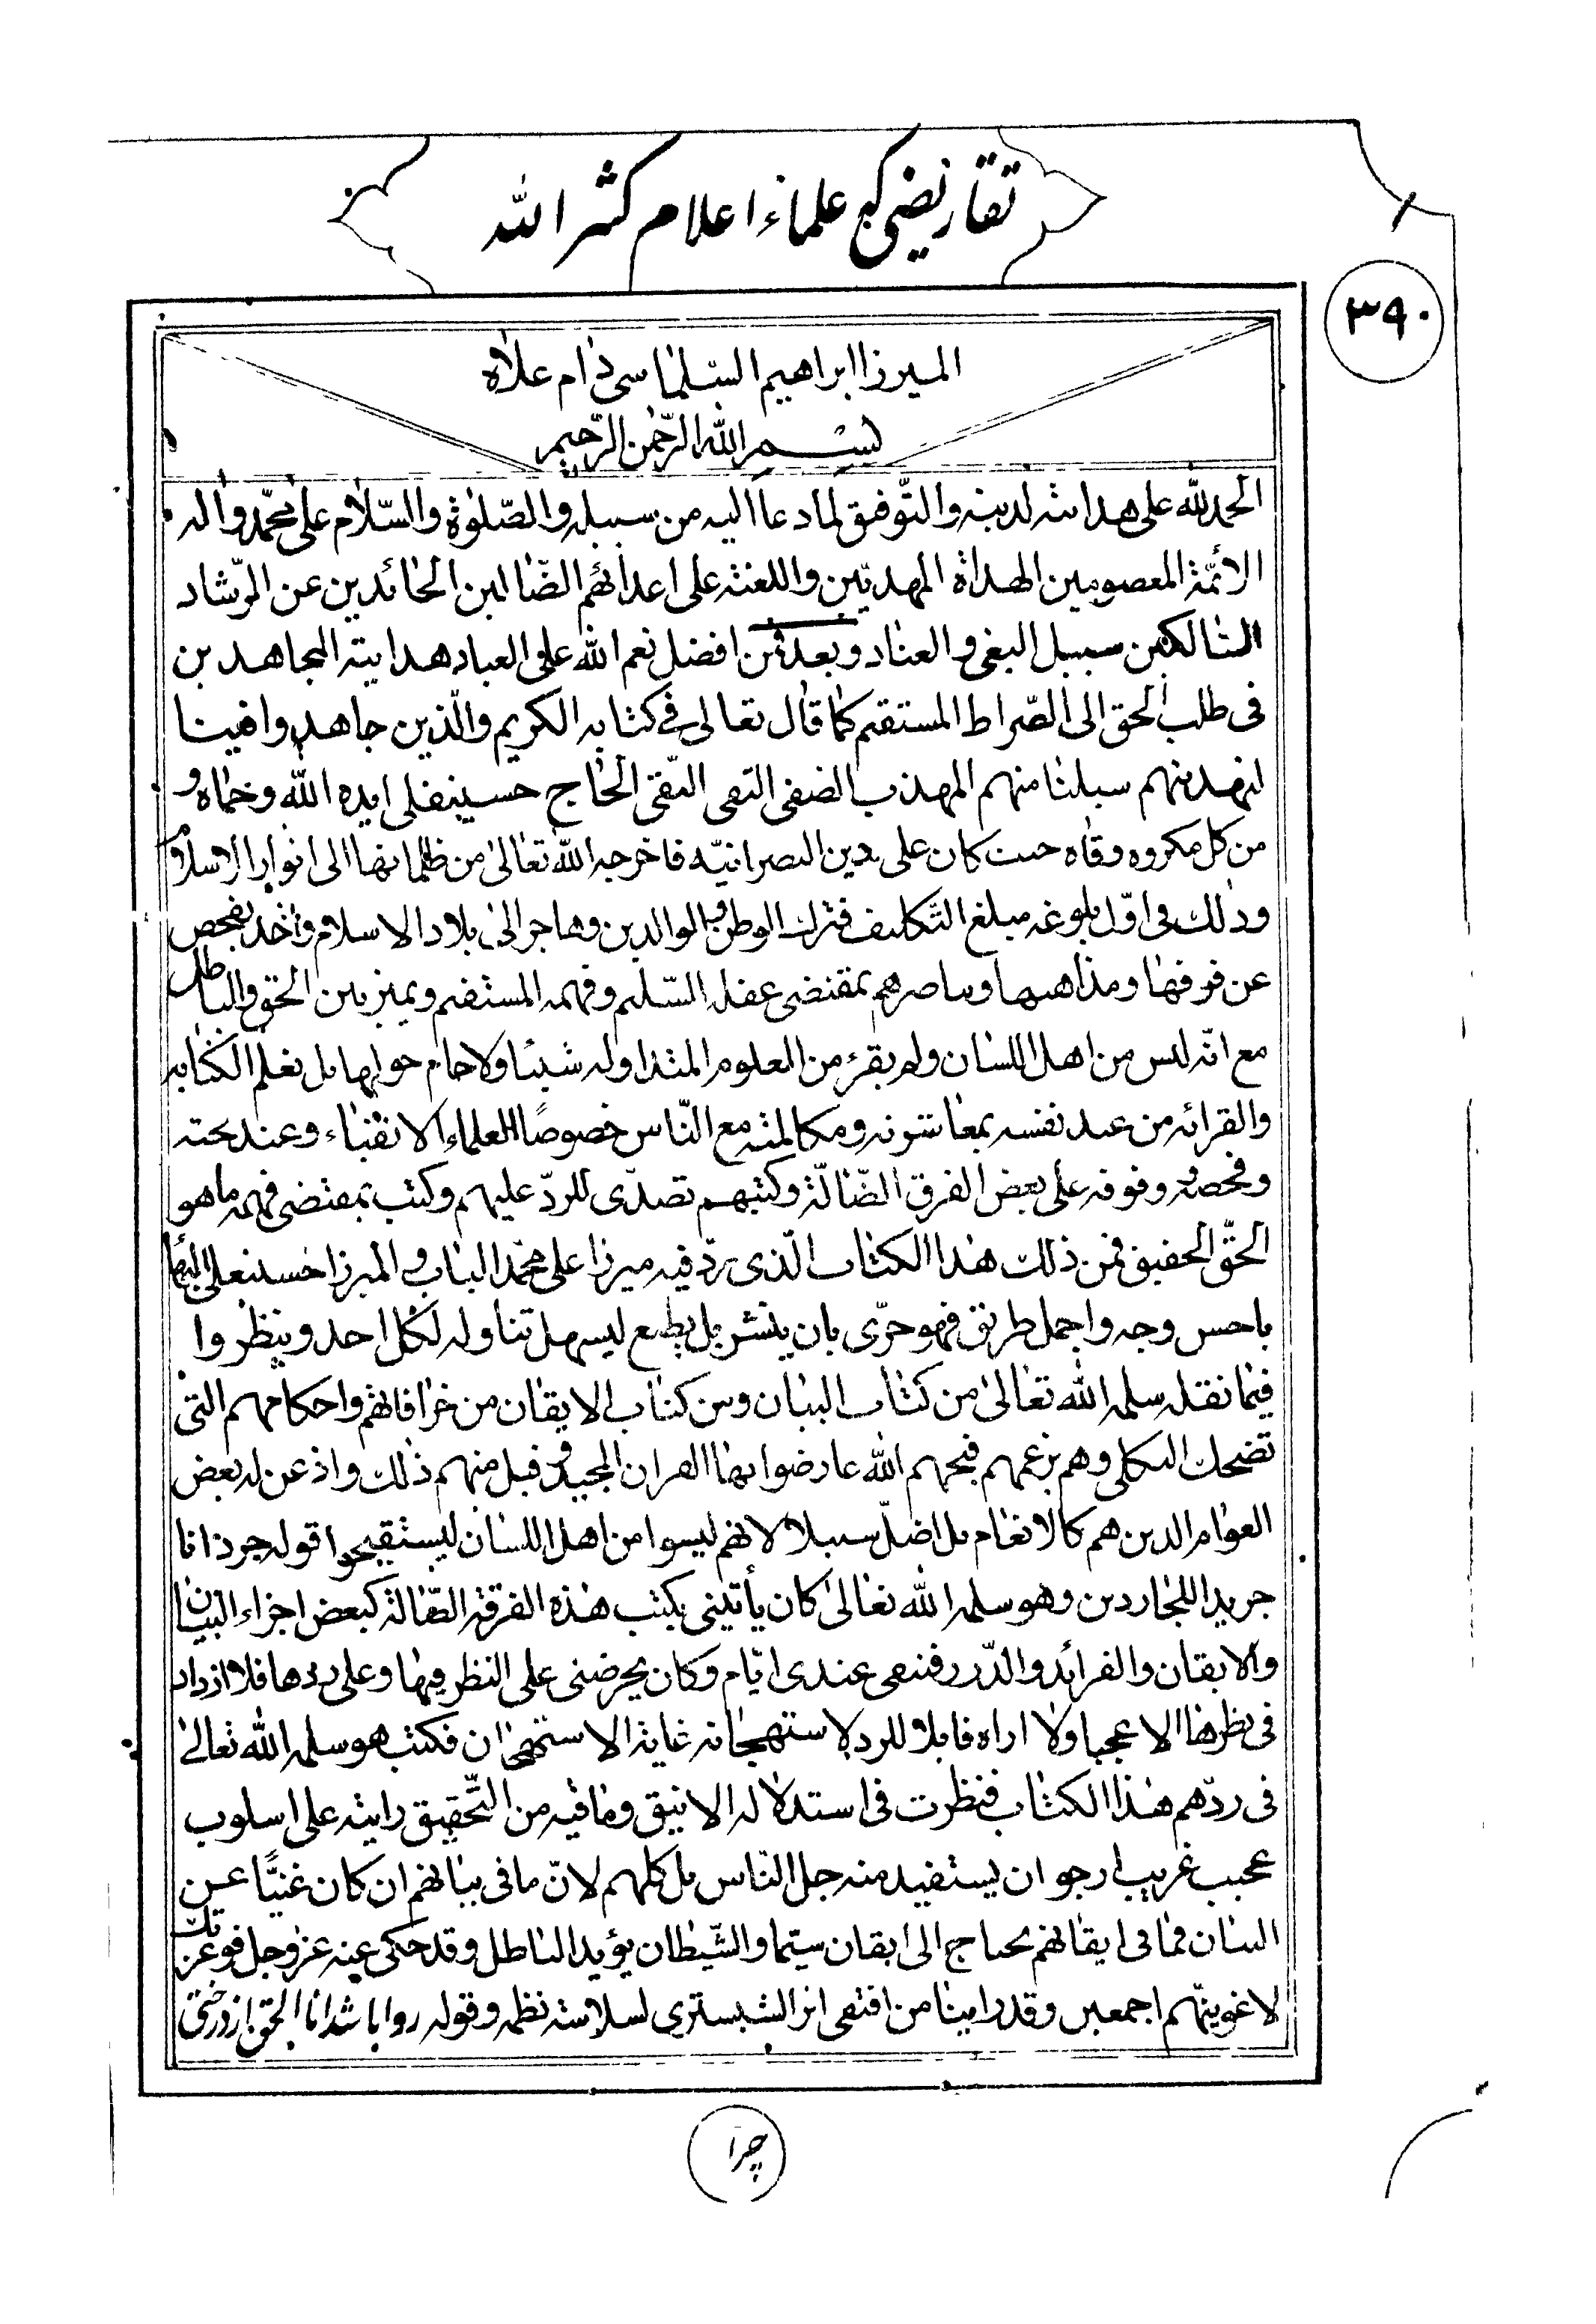 تقاريض علماء اعلام كثر الله
٣٩٠
الميرزا ابراهيم السلماسي دام علاه
بسم الله الرحمن الرحيم
الحمد لله على هدايته لدينه والتوفيق لما دعا اليه من سبيله والصلوة والسلام على محمد واله
الائمة المعصومين الهداة المهديين واللعنة على اعدائهم الضالين الحائدين عن الرشاد
السالكين سبيل البغي والعناد وبعد فمن افضل نعم الله على العباد هدايته المجاهدين
في طلب الحق الى الصراط المستقيم كما قال تعالى في كتابه الكريم والذين جاهدوا فينا
لنهدينهم سبلنا منهم المهذب الصفي التقي النقي الحاج حسينقلي ايده الله وحماه و
من كل مكروه وقاه حيث كان على دين النصرانيه فاخرجه الله تعالى من ظلماتها الى انوار الاسلام
وذلك في اول بلوغه مبلغ التكليف فترك الوطن والوالدين وهاجر الى بلاد الاسلام واخذ يفحص
عن فرقها ومذاهبها بمقتضى عقله السليم وفهمه المستقيم ويميز بين الحق والباطل
مع انه ليس من اهل اللسان ولم يقرء من العلوم المتداوله شيئا ولا حام حولها بل تعلم الكتابه
والقرائه من عند نفسه بمعاشرته ومكالمته مع الناس خصوصًا العلماء الاتقياء وعند بحثه
وفحصه وقوفه على بعض الفرق الضالة وكتبهم تصدى للرد عليهم وكتب بمقتضى فهمه ما هو
الحق الحقيق فمن ذلك هذا الكتاب الذي رد فيه ميرزا علي محمد الباب والميرزا حسينعلي البهاء
باحسن وجه واجمل طريق فهو حري بان ينشر بل يطبع ليسهل تناوله لكل احد وينظروا
فيما نقله سلمه الله تعالى من كتاب البيان ومن كتاب الايقان من خرافاتهم واحكامهم التي
تضحك الثكلى وهم بزعمهم قبحهم الله عارضوا بها القران المجيد وقبل منهم ذلك واذعن له بعض
العوام الذين هم كالانعام بل اضل سبيلا لانهم ليسوا من اهل اللسان ليستقبحوا قوله جرذانا
جريدا اللجاردين وهو سلمه الله تعالى كان يأتيني بكتب هذه الفرقة الضالة كبعض اجزاء البيان
والايقان والفرائد والدرر فتبقى عندي ايام وكان يحرضني على النظر فيها وعلى ردها فلا ازداد
في نظرها الا عجبا ولا اراه قابلا للرد لاستهجانه غاية الاستهجان فكتب هو سلمه الله تعالى
في ردهم هذا الكتاب فنظرت في استدلاله الانيق وما فيه من التحقيق رايته على اسلوب
عجيب غريب ارجو ان يستفيد منه جل الناس بل كلهم لان ما في بيانهم ان كان غنيًّا عن
البيان فما في ايقانهم يحتاج الى ايقان سيما والشيطان يؤيد الباطل وقد حكى عنه عز وجل فوعزتك
لاغوينهم اجمعين وقد راينا من اقتفى اثر الشبستري لسلاسة نظمه وقوله روا باشد انا الحق از درختى
چرا